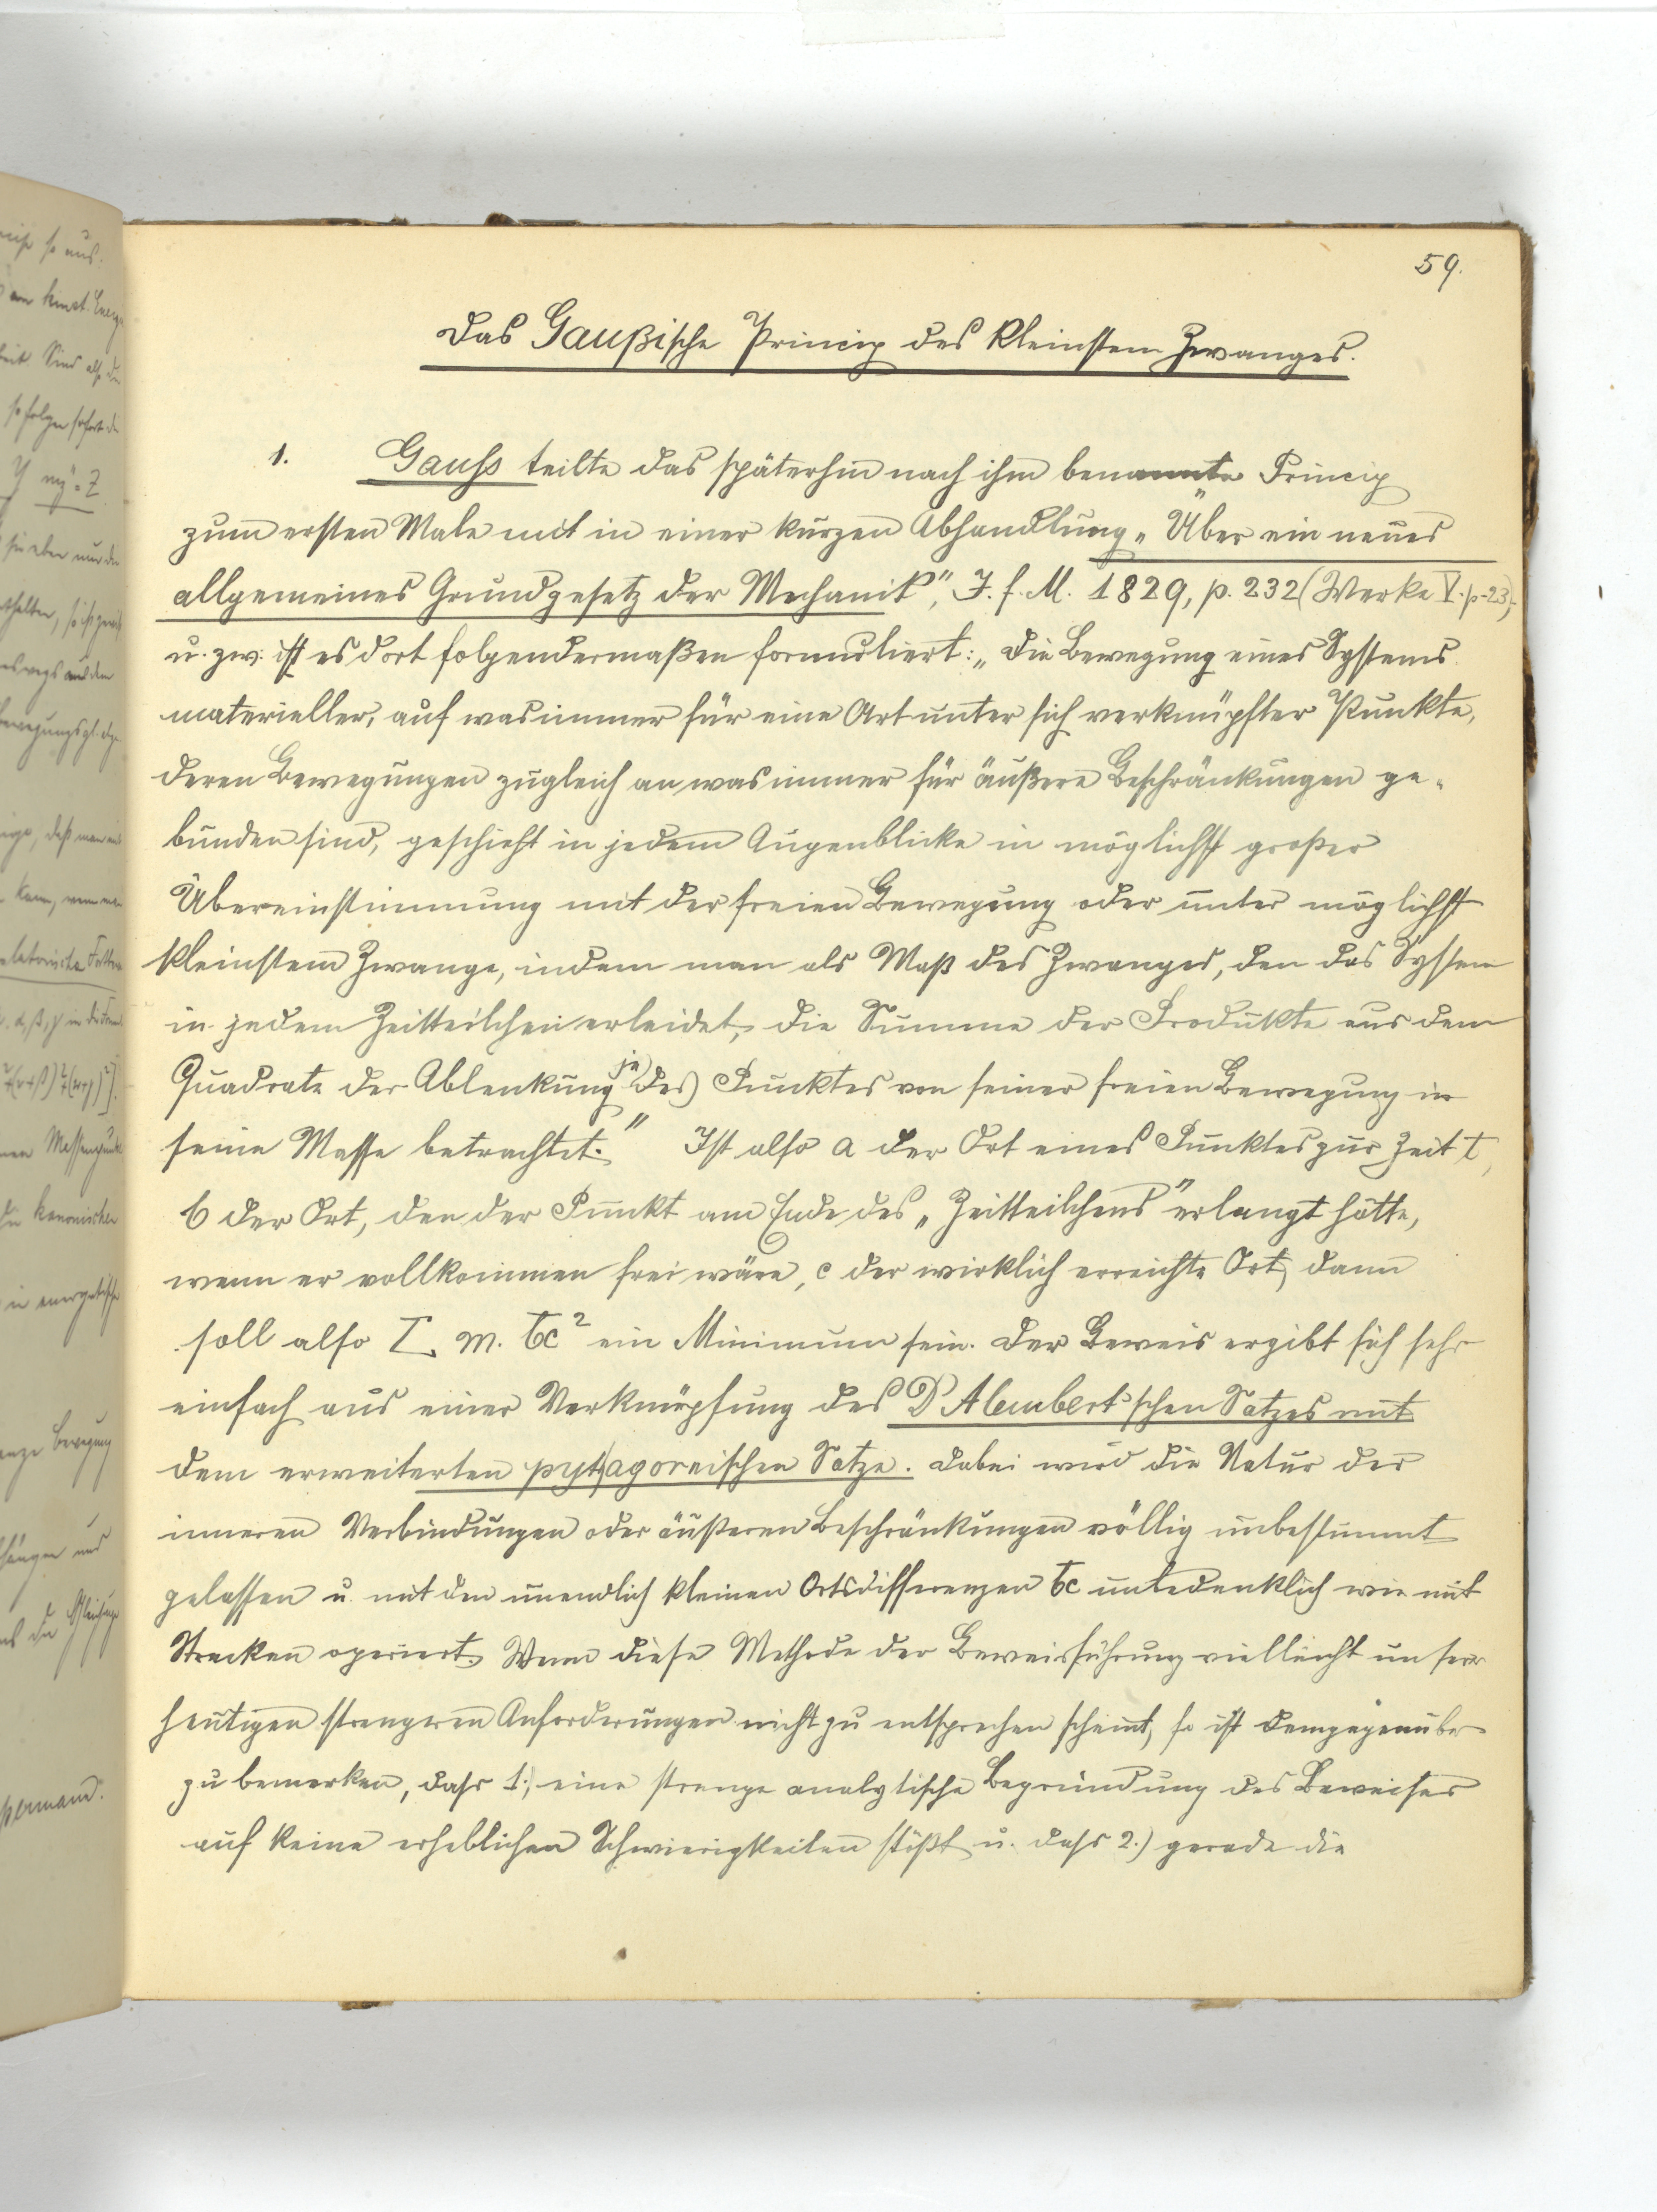 59.
Das Gaußische Princip des kleinsten Zwanges.
1. Gauss teilte das späterhin nach ihm benannte Princip
zum ersten Male mit in einer kurzen Abhandlung „Über ein neues
allgemeines Grundgesetz der Mechanik", J. f. M. 1829, p. 232 (Werke V. p. 23),
u. zw. ist es dort folgendermaßen formuliert: „Die Bewegung eines Systems
materieller, auf was immer für eine Art unter sich verknüpfter Punkte,
deren Bewegungen zugleich an was immer für äußere Beschränkungen ge-
bunden sind, geschieht in jedem Augenblicke in möglichst großer
Übereinstimmung mit der freien Bewegung oder unter möglichst
kleinstem Zwange, indem man als Maß des Zwanges, den das System
in jedem Zeitteilchen erleidet, die Summe der Produkte aus dem
Quadrate der Ablenkung jedes Punktes von seiner freien Bewegung in
seine Masse betrachtet." Ist also a der Ort eines Punktes zur Zeit t,
b der Ort, den der Punkt am Ende des „Zeitteilchens" erlangt hätte,
wenn er vollkommen frei wäre, c der wirklich erreichte Ort, dann
soll also Σ m. bc² ein Minimum sein. Der Beweis ergibt sich sehr
einfach aus einer Verknüpfung des D'Alembert'schen Satzes mit
dem erweiterten pythagoreischen Satze. Dabei wird die Natur der
inneren Verbindungen oder äußeren Beschränkungen völlig unbestimmt
gelassen u. mit den unendlich kleinen Ortsdifferenzen bc unbedenklich wie mit
Strecken operiert. Wenn diese Methode der Beweisführung vielleicht unsern
heutigen strengeren Anforderungen nicht zu entsprechen scheint, so ist demgegenüber
zu bemerken, dass 1.) eine strenge analytische Begründung des Beweises
auf keine erheblichen Schwierigkeiten stößt u. dass 2.) gerade die